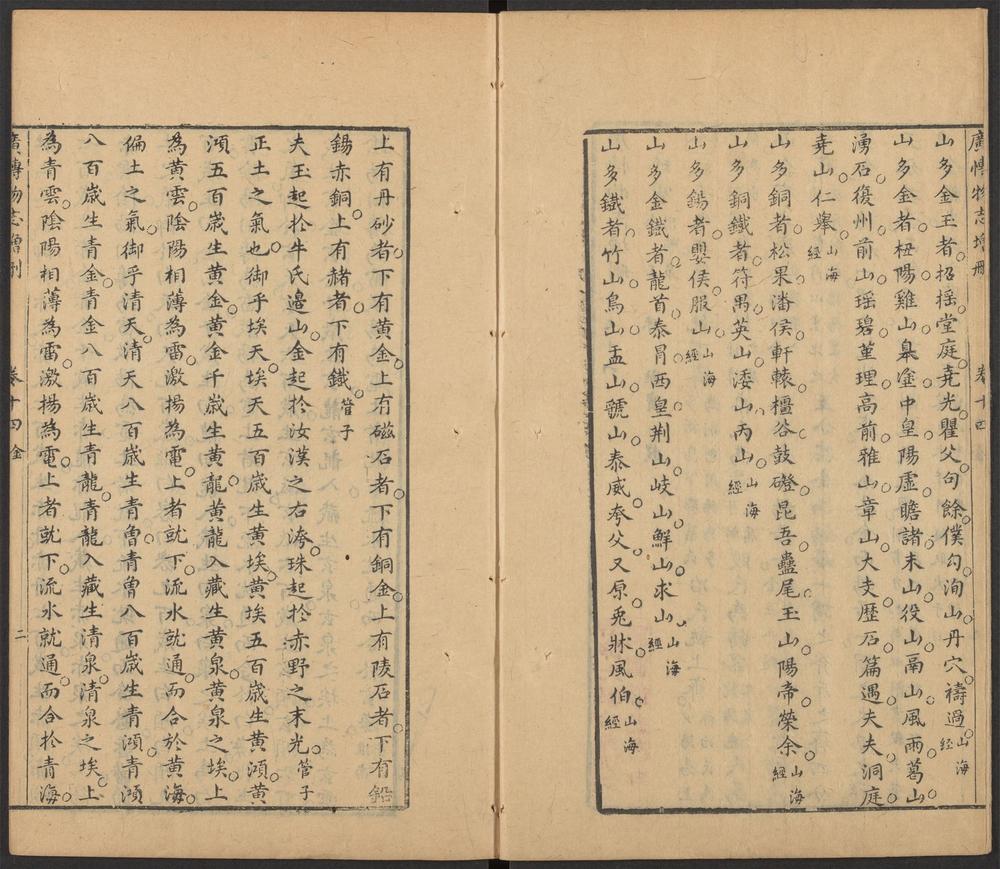 廣博物志增刪 卷十四
山多金玉者招搖堂庭堯光瞿父句餘僕勾洵山丹穴禱過山海經
山多金者杻陽雞山皋塗中皇陽虛瞻諸末山役山鬲山風雨葛山
湧石復州前山瑶碧堇理高前雅山章山大支歷石篇遇夫夫洞庭
堯山仁舉山海經
山多銅者松果潘侯軒轅橿谷鼓鐙昆吾蠱尾王山陽帝榮余山海經
山多銅鐵者符禺英山逶山丙山山海經
山多錫者嬰侯服山山海經
山多金鐵者龍首泰冐西皇荆山岐山鮮山求山山海經
山多鐵者竹山鳥山盂山虢山泰威夸父又原兎牀風伯山海經
上有丹砂者下有黃金上有磁石者下有銅金上有陵石者下有鉛
錫赤銅上有赭者下有鐵管子
夫玉起於牛氏邉山金起於汝漢之右洿珠起於赤野之末光管子
正土之氣也御乎埃天埃天五百歲生黃埃黃埃五百歲生黃澒黃
澒五百歲生黃金黃金千歲生黃龍黃龍入藏生黃泉黃泉之埃上
為黃雲陰陽相薄為雷激揚為電上者就下流水就通而合於黃海
偏土之氣御乎清天清天八百歲生青曾青曾八百歲生青澒青澒
八百歲生青金青金八百歲生青龍青龍入藏生清泉清泉之埃上
為青雲陰陽相薄為雷激揚為電上者就下流水就通而合於青海
廣博物志增刪 卷十四 金 二